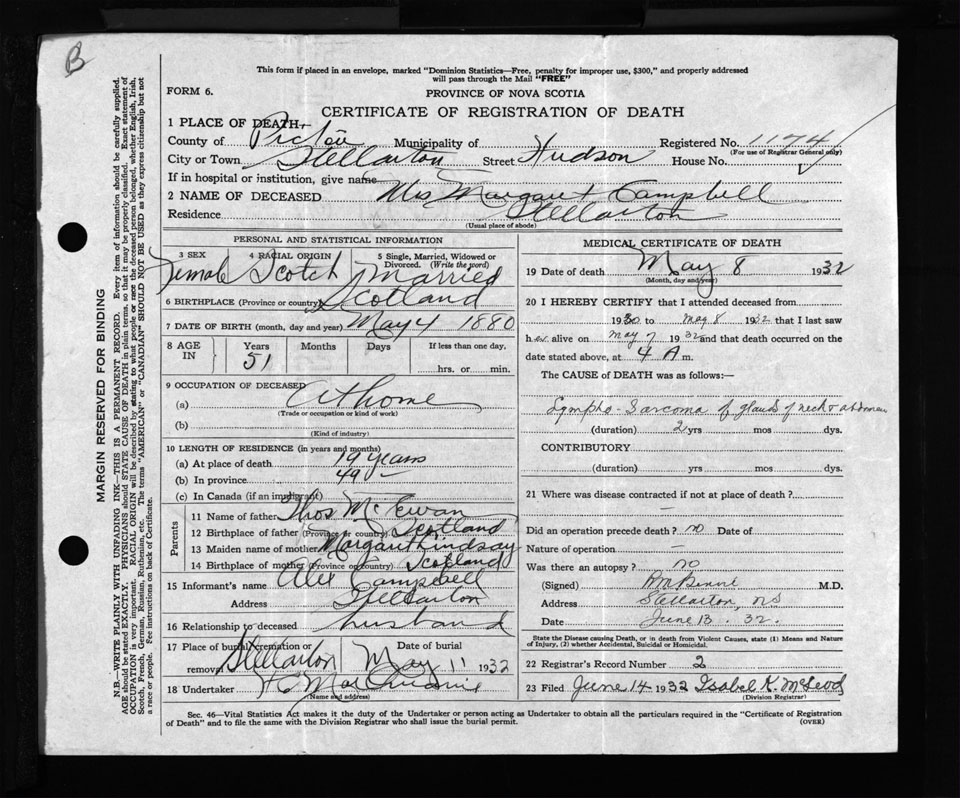 B
This form if placed in an envelope, marked "Dominion Statistics—Free, penalty for improper use, $300," and properly addressed
will pass through the Mail "FREE"
FORM 6.
PROVINCE OF NOVA SCOTIA
CERTIFICATE OF REGISTRATION OF DEATH
1 PLACE OF DEATH—
County of Pictou Municipality of Registered No. 1174
(For use of Registrar General only)
City or Town Stellarton Street Hudson House No.
If in hospital or institution, give name
2 NAME OF DECEASED Mrs Margaret Campbell
Residence Stellarton
(Usual place of abode)
PERSONAL AND STATISTICAL INFORMATION
3 SEX 4 RACIAL ORIGIN 5 Single, Married, Widowed or
Divorced. (Write the word)
Female Scotch Married
6 BIRTHPLACE (Province or country) Scotland
7 DATE OF BIRTH (month, day and year) May 4 1880
8 AGE IN Years Months Days If less than one day,
51 hrs. or min.
9 OCCUPATION OF DECEASED
(a) At home
(Trade or occupation or kind of work)
(b)
(Kind of industry)
10 LENGTH OF RESIDENCE (in years and months)
(a) At place of death 19 years
(b) In province 49
(c) In Canada (if an immigrant)
Parents
11 Name of father Thos McEwan
12 Birthplace of father (Province or country) Scotland
13 Maiden name of mother Margaret Lindsay
14 Birthplace of mother (Province or country) Scotland
15 Informant's name Alex Campbell
Address Stellarton
16 Relationship to deceased husband
17 Place of burial, cremation or Date of burial
removal Stellarton May 11 1932
18 Undertaker
(Name and address)
MEDICAL CERTIFICATE OF DEATH
19 Date of death May 8 1932
(Month, day and year)
20 I HEREBY CERTIFY that I attended deceased from
1930 to May 8 1932 that I last saw
her alive on May 7 1932 and that death occurred on the
date stated above, at 4 A m.
The CAUSE of DEATH was as follows:—
Lympho-Sarcoma of glands of neck & abdomen
(duration) 2 yrs mos dys.
CONTRIBUTORY
(duration) yrs mos dys.
21 Where was disease contracted if not at place of death?
—
Did an operation precede death? no Date of
Nature of operation —
Was there an autopsy? no
(Signed) M.D.
Address Stellarton, NS
Date June 13. 32.
State the Disease causing Death, or in death from Violent Causes, state (1) Means and Nature
of Injury, (2) whether Accidental, Suicidal or Homicidal.
22 Registrar's Record Number 2
23 Filed June 14 1932 Isabel K. McLeod
(Division Registrar)
Sec. 46—Vital Statistics Act makes it the duty of the Undertaker or person acting as Undertaker to obtain all the particulars required in the "Certificate of Registration
of Death" and to file the same with the Division Registrar who shall issue the burial permit. (OVER)
MARGIN RESERVED FOR BINDING
N.B.—WRITE PLAINLY WITH UNFADING INK—THIS IS A PERMANENT RECORD. Every item of information should be carefully supplied.
AGE should be stated EXACTLY. PHYSICIANS should STATE CAUSE OF DEATH in plain terms, so that it may be properly classified. Exact statement of
OCCUPATION is very important. RACIAL ORIGIN will be described by stating to what people or race the deceased person belonged, whether English, Irish,
Scotch, French, German, Russian, Ruthenian, etc. The terms "AMERICAN" or "CANADIAN" SHOULD NOT BE USED as they express citizenship but not
a race or people. See instructions on back of Certificate.